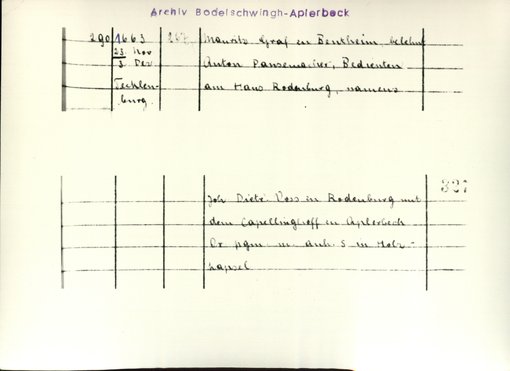 Archiv Bodelschwingh-Aplerbeck
290 1663 Mauritz Graf zu Bentheim, belehnt
23. Nov
Anton Pansemacher, Bedienten
3. Dez
am Haus Rodenburg, namens
Tecklen-
burg.
321
Joh Dietr. Voss zu Rodenburg mit
dem Capellinghoff zu Aplerbeck
Or pgm m anh S in Holz-
kapsel